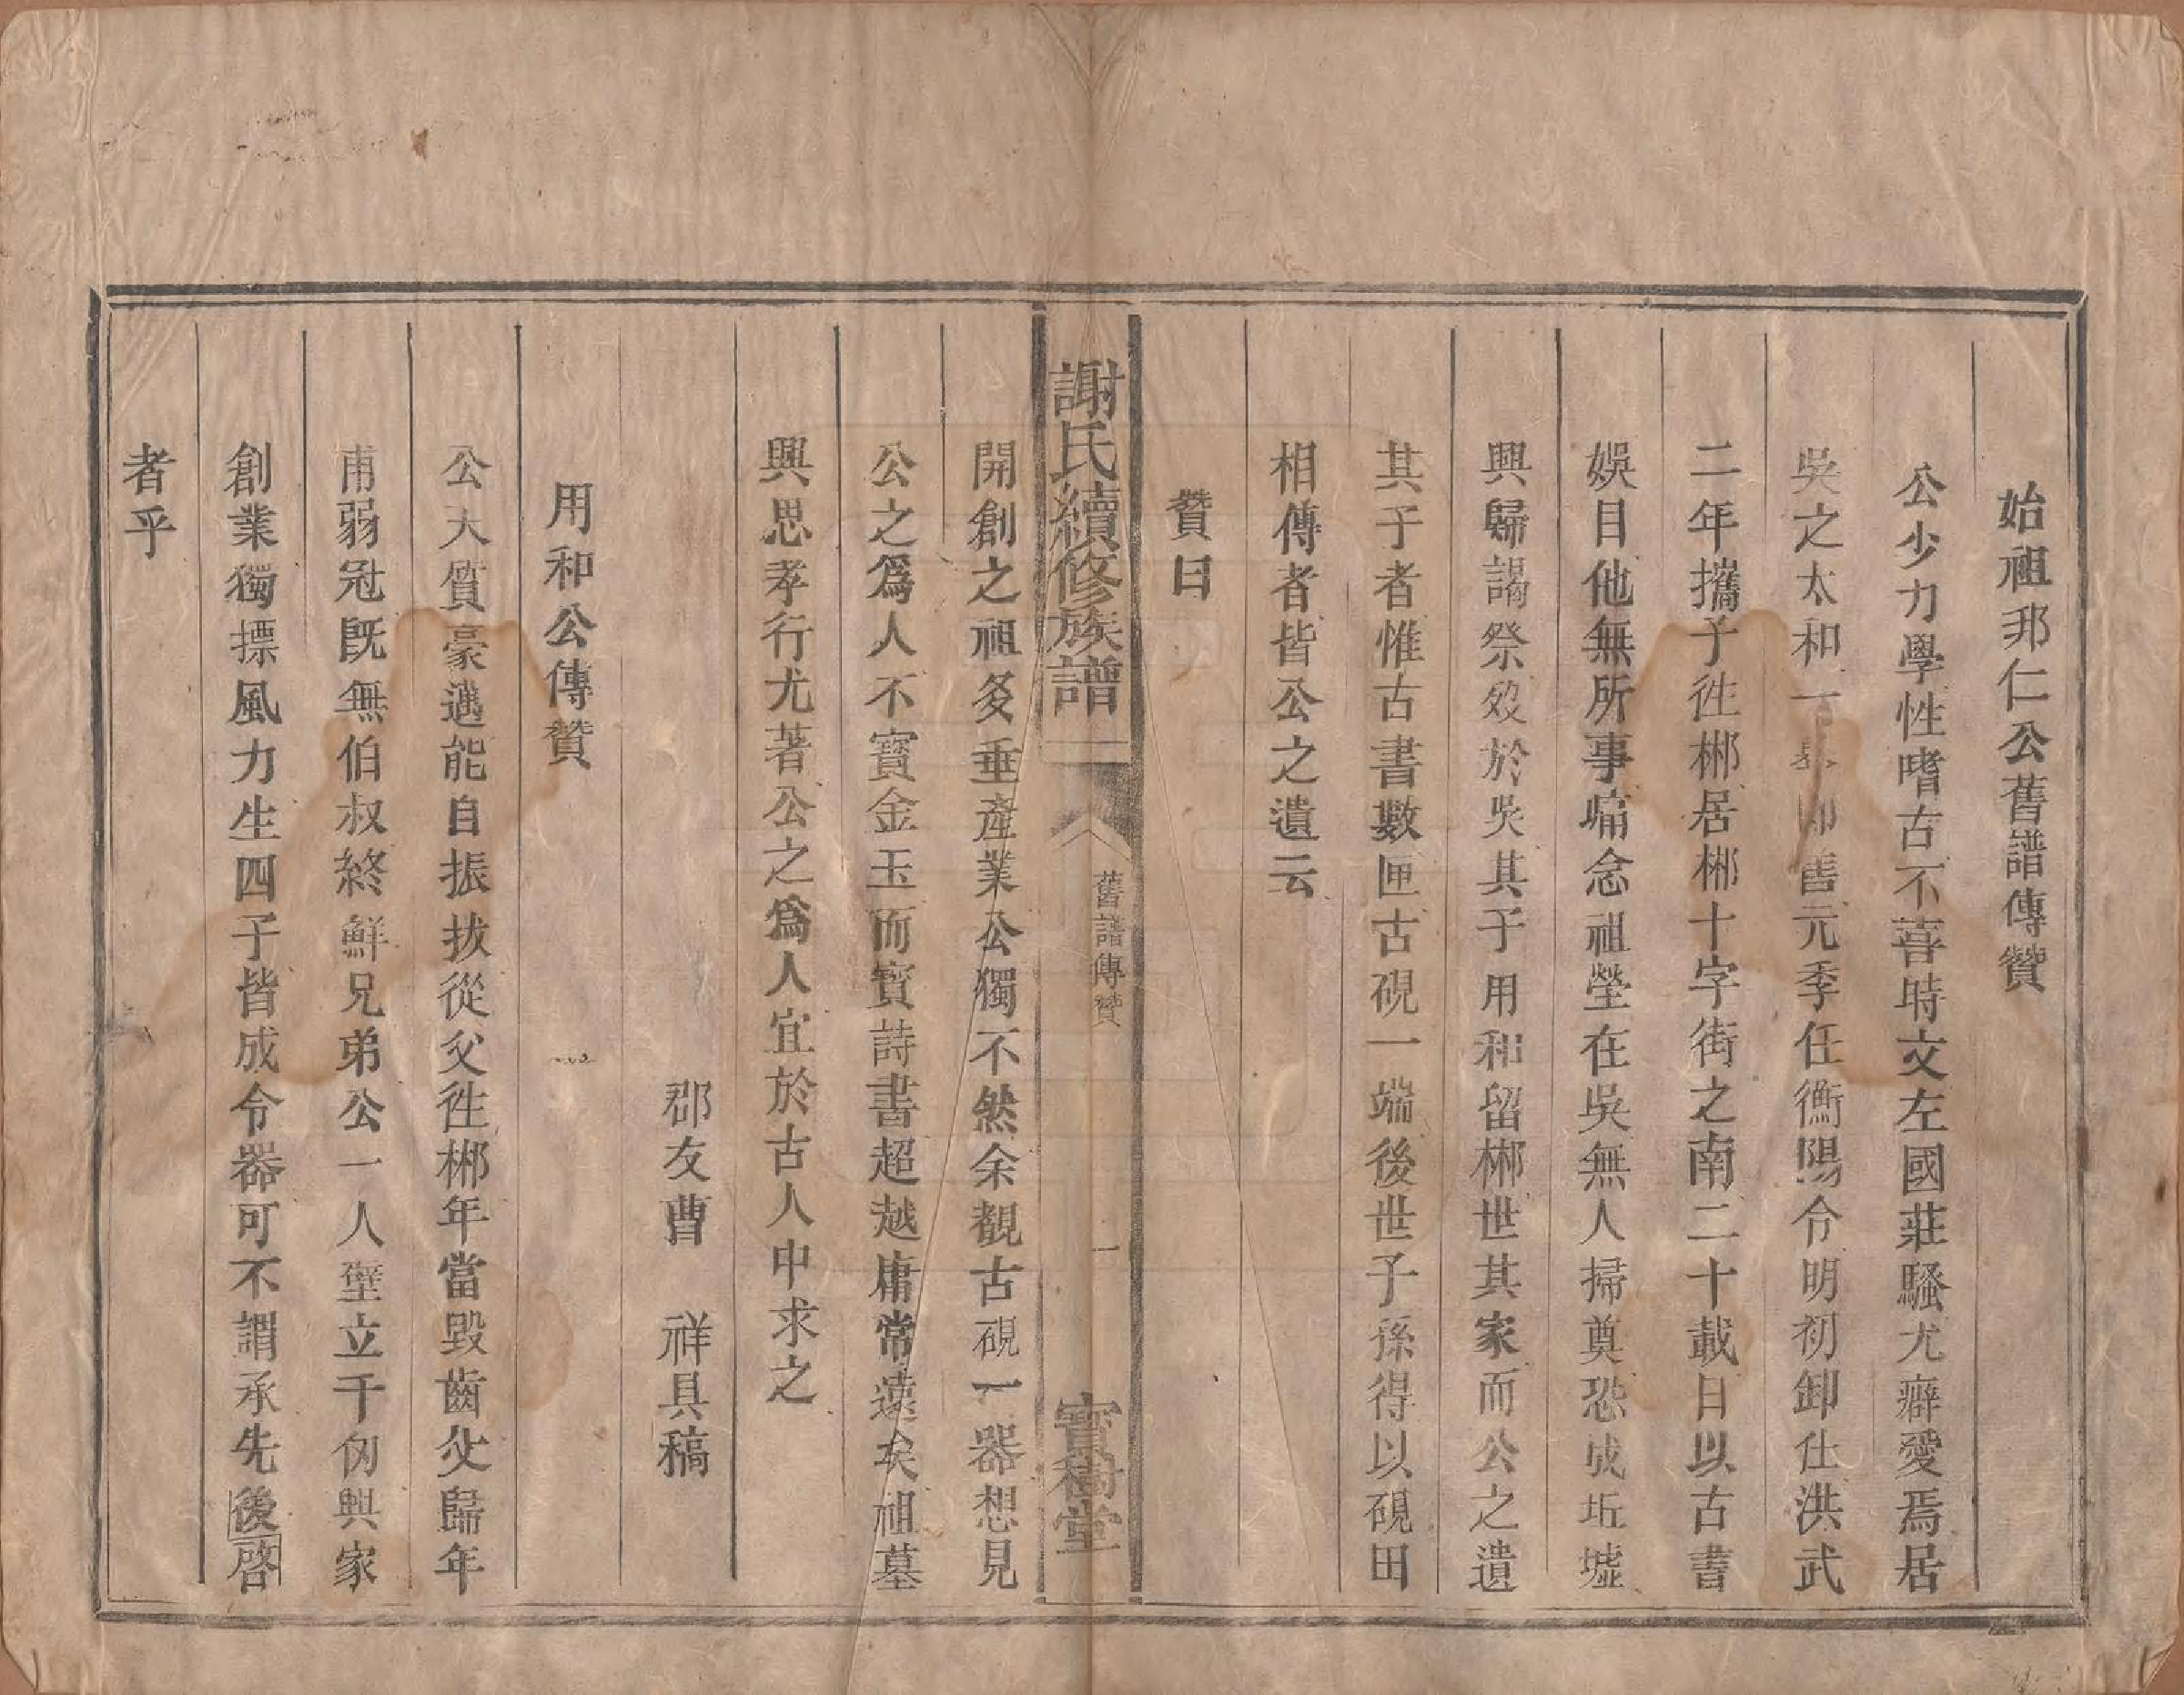 始祖邦仁公舊譜傳贊
公少力學性嗜古不喜時文左國莊騷尤癖愛焉居
吳之太和一善元季任衡陽令明初卸仕洪武
二年攜子徃郴居郴十字街之南二十載日以古書
娛目他無所事痛念祖塋在吳無人掃奠恐成坵墟
興歸謁祭歿於吳其子用和留郴世其家而公之遺
其子者惟古書數匣古硯一端後世子孫得以硯田
相傳者皆公之遺云
贊曰
謝氏續修族譜
舊譜傳贊
一
寶樹堂
開創之祖多垂產業公獨不然余觀古硯一器想見
公之爲人不寳金玉而寳詩書超越庸常遠矣祖墓
興思孝行尤著公之爲人宜於古人中求之
郡友曹 祥具稿
用和公傳贊
公大質豪邁能自振拔從父徃郴年當毀齒父歸年
甫弱冠旣無伯叔終鮮兄弟公一人壁立千仞興家
創業獨摽風力生四子皆成令器可不謂承先後啓
者乎